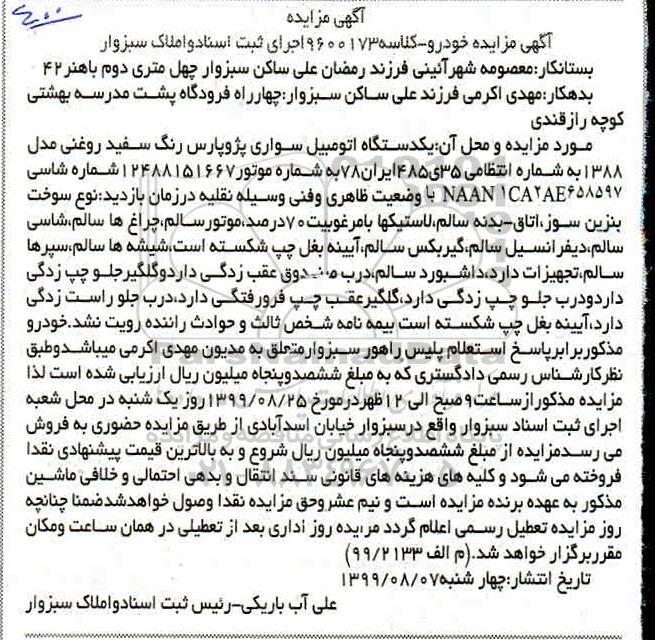 آگهی مزایده
آگهی مزایده خودرو-کلاسه۹۶۰۰۱۷۳اجرای ثبت اسنادواملاک سبزوار
بستانکار:معصومه شهرآئینی فرزند رمضان علی ساکن سبزوار چهل متری دوم باهنر۴۲
بدهکار:مهدی اکرمی فرزند علی ساکن سبزوار:چهارراه فرودگاه پشت مدرسه بهشتی
کوچه رازقندی
مورد مزایده و محل آن:یکدستگاه اتومبیل سواری پژوپارس رنگ سفید روغنی مدل
۱۳۸۸به شماره انتظامی ۳۵ی۴۸۵ایران۷۸به شماره موتور۱۲۴۸۸۱۵۱۶۶۷شماره شاسی
NAAN۱CA۲AE۶۵۸۵۹۷ با وضعیت ظاهری وفنی وسیله نقلیه درزمان بازدید:نوع سوخت
بنزین سوز،اتاق-بدنه سالم،لاستیکها بامرغوبیت۷۰درصد،موتورسالم،چراغ ها سالم،شاسی
سالم،دیفرانسیل سالم،گیربکس سالم،آیینه بغل چپ شکسته است،شیشه ها سالم،سپرها
سالم،تجهیزات دارد،داشبورد سالم،درب صندوق عقب زدگی داردوگلگیرجلو چپ زدگی
داردودرب جلو چپ زدگی دارد،گلگیرعقب چپ فرورفتگی دارد،درب جلو راست زدگی
دارد،آیینه بغل چپ شکسته است بیمه نامه شخص ثالث و حوادث راننده رویت نشد.خودرو
مذکوربرابرپاسخ استعلام پلیس راهور سبزوارمتعلق به مدیون مهدی اکرمی میباشدوطبق
نظرکارشناس رسمی دادگستری که به مبلغ ششصدوپنجاه میلیون ریال ارزیابی شده است لذا
مزایده مذکورازساعت۹صبح الی ۱۲ظهردرمورخ ۱۳۹۹/۰۸/۲۵روز یک شنبه در محل شعبه
اجرای ثبت اسناد سبزوار واقع درسبزوار خیابان اسدآبادی از طریق مزایده حضوری به فروش
می رسدمزایده از مبلغ ششصدوپنجاه میلیون ریال شروع و به بالاترین قیمت پیشنهادی نقدا
فروخته می شود و کلیه های هزینه های قانونی سند انتقال و بدهی احتمالی و خلافی ماشین
مذکور به عهده برنده مزایده است و نیم عشروحق مزایده نقدا وصول خواهدشدضمنا چنانچه
روز مزایده تعطیل رسمی اعلام گردد مزایده روز اداری بعد از تعطیلی در همان ساعت ومکان
مقرربرگزار خواهد شد.(م الف ۹۹/۲۱۳۳)
تاریخ انتشار:چهار شنبه۱۳۹۹/۰۸/۰۷
علی آب باریکی-رئیس ثبت اسنادواملاک سبزوار